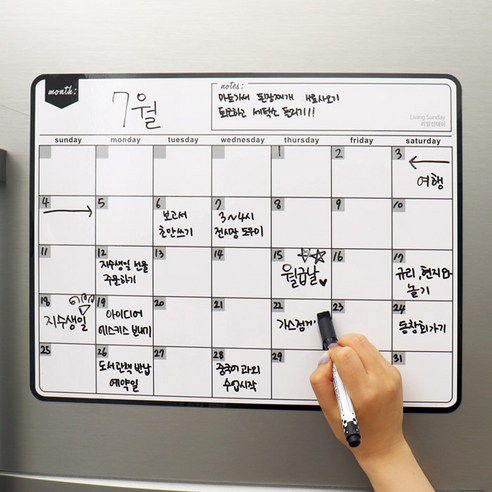 month:
7월
notes:
마트가서 된장찌개 재료사오기
퇴근하고 세탁소 들리기!!!
Living Sunday
리빙썬데이
sunday monday tuesday wednesday thursday friday saturday
1 2 3
여행
4 5 6 7 8 9 10
보고서
초안쓰기
3~4시
전시장 도우미
11 12 13 14 15 16 17
지수생일 선물
주문하기
월급날
규리, 현지와
놀기
18 19 20 21 22 23 24
지수생일
아이디어
에스키스 보내기
가스점검
동창회가기
25 26 27 28 29 31
도서관책 반납
예약일
중국어 과외
수업시작